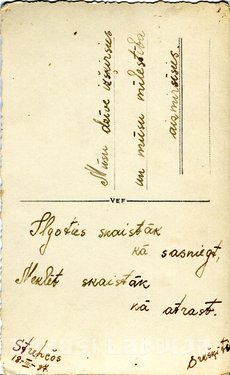 Mūsu dzīve izgaisīs
un mūsu mīlestība
aizmirsīsies.
VEF
Ilgoties skaistāk
kā sasniegt,
Meklēt skaistāk
kā atrast.
Strenčos